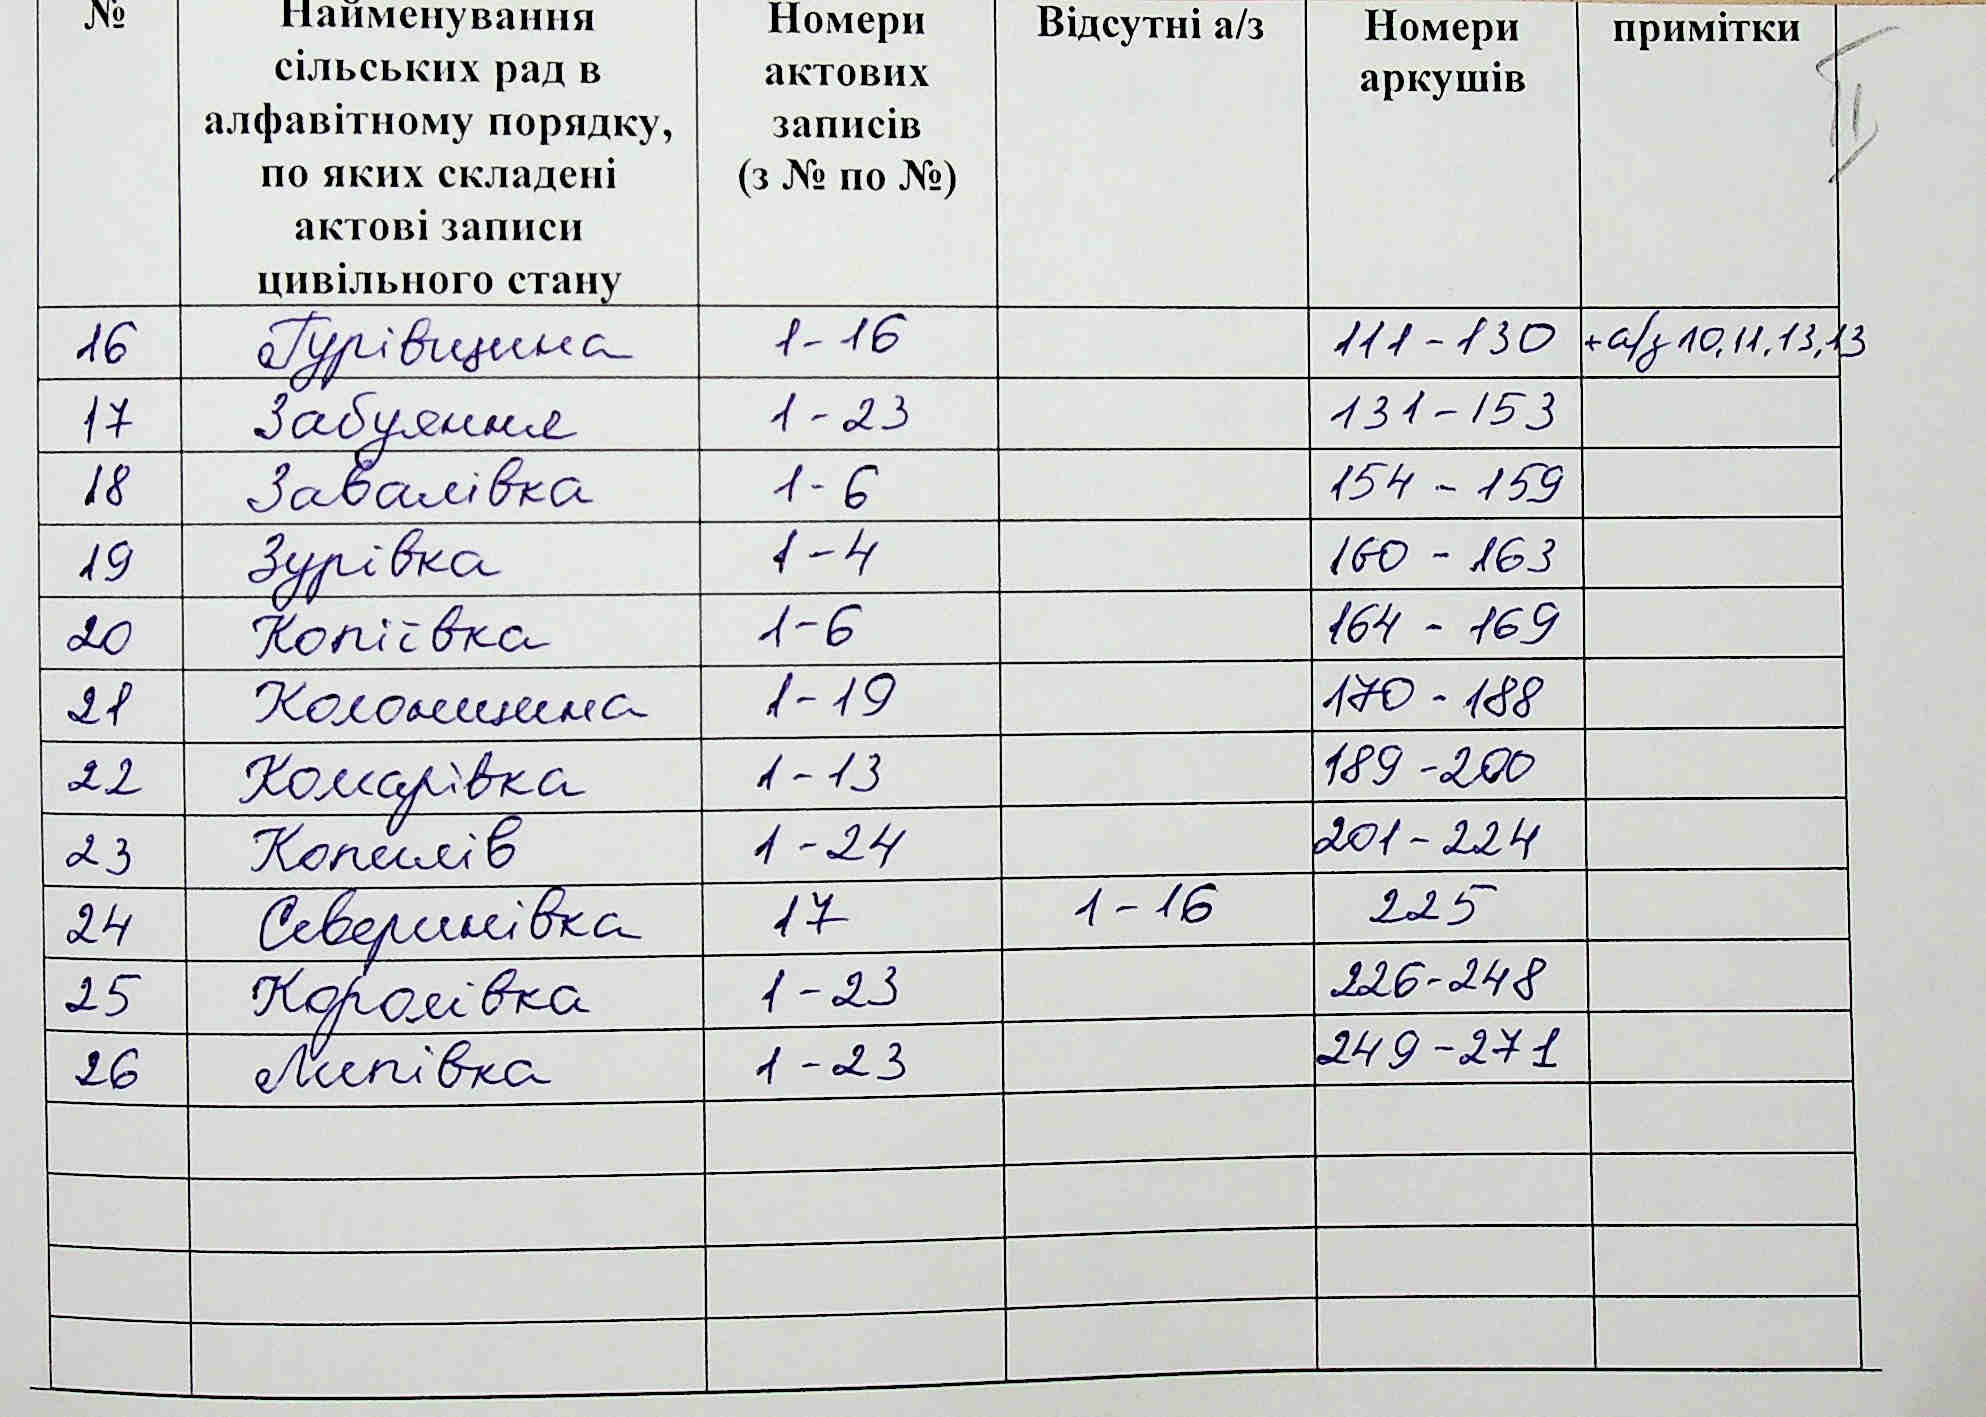 № Найменування сільських рад в алфавітному порядку, по яких складені актові записи цивільного стану Номери актових записів (з № по №) Відсутні а/з Номери аркушів примітки
II
16 Гурівщина 1-16 111-130 +а/з 10,11,13,13
17 Забуяння 1-23 131-153
18 Завалівка 1-6 154-159
19 Зурівка 1-4 160-163
20 Копіївка 1-6 164-169
21 Колонщина 1-19 170-188
22 Комарівка 1-13 189-200
23 Копилів 1-24 201-224
24 Северинівка 17 1-16 225
25 Королівка 1-23 226-248
26 Липівка 1-23 249-271